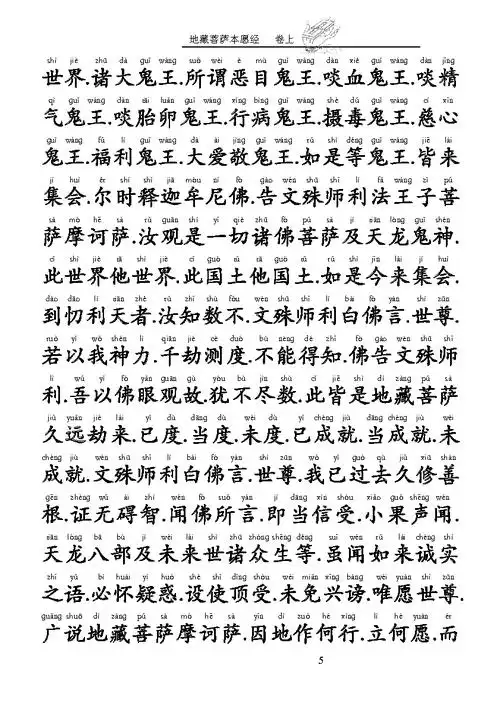 地藏菩萨本愿经 卷上
shì jiè zhū dà guǐ wáng suǒ wèi è mù guǐ wáng dàn xiě guǐ wáng dàn jīng
世界.诸大鬼王.所谓恶目鬼王.啖血鬼王.啖精
qì guǐ wáng dàn tāi luǎn guǐ wáng xíng bìng guǐ wáng shè dú guǐ wáng cí xīn
气鬼王.啖胎卵鬼王.行病鬼王.摄毒鬼王.慈心
guǐ wáng fú lì guǐ wáng dà ài jìng guǐ wáng rú shì děng guǐ wáng jiē lái
鬼王.福利鬼王.大爱敬鬼王.如是等鬼王.皆来
jí huì ěr shí shì jiā móu ní fó gào wén shū shī lì fǎ wáng zǐ pú
集会.尔时释迦牟尼佛.告文殊师利法王子菩
sà mó hē sà rǔ guān shì yí qiè zhū fó pú sà jí tiān lóng guǐ shén
萨摩诃萨.汝观是一切诸佛菩萨及天龙鬼神.
cǐ shì jiè tā shì jiè cǐ guó tǔ tā guó tǔ rú shì jīn lái jí huì
此世界他世界.此国土他国土.如是今来集会.
dào dāo lì tiān zhě rǔ zhī shù fǒu wén shū shī lì bái fó yán shì zūn
到忉利天者.汝知数不.文殊师利白佛言.世尊.
ruò yǐ wǒ shén lì qiān jié cè duó bù néng dé zhī fó gào wén shū shī
若以我神力.千劫测度.不能得知.佛告文殊师
lì wú yǐ fó yǎn guān gù yóu bù jìn shù cǐ jiē shì dì zàng pú sà
利.吾以佛眼观故.犹不尽数.此皆是地藏菩萨
jiǔ yuǎn jié lái yǐ dù dāng dù wèi dù yǐ chéng jiù dāng chéng jiù wèi
久远劫来.已度.当度.未度.已成就.当成就.未
chéng jiù wén shū shī lì bái fó yán shì zūn wǒ yǐ guò qù jiǔ xiū shàn
成就.文殊师利白佛言.世尊.我已过去久修善
gēn zhèng wú ài zhì wén fó suǒ yán jí dāng xìn shòu xiǎo guǒ shēng wén
根.证无碍智.闻佛所言.即当信受.小果声闻.
tiān lóng bā bù jí wèi lái shì zhū zhòng shēng děng suī wén rú lái chéng shí
天龙八部及未来世诸众生等.虽闻如来诚实
zhī yǔ bì huái yí huò shè shǐ dǐng shòu wèi miǎn xīng bàng wéi yuàn shì zūn
之语.必怀疑惑.设使顶受.未免兴谤.唯愿世尊.
guǎng shuō dì zàng pú sà mó hē sà yīn dì zuò hé xíng lì hé yuàn ér
广说地藏菩萨摩诃萨.因地作何行.立何愿.而
5